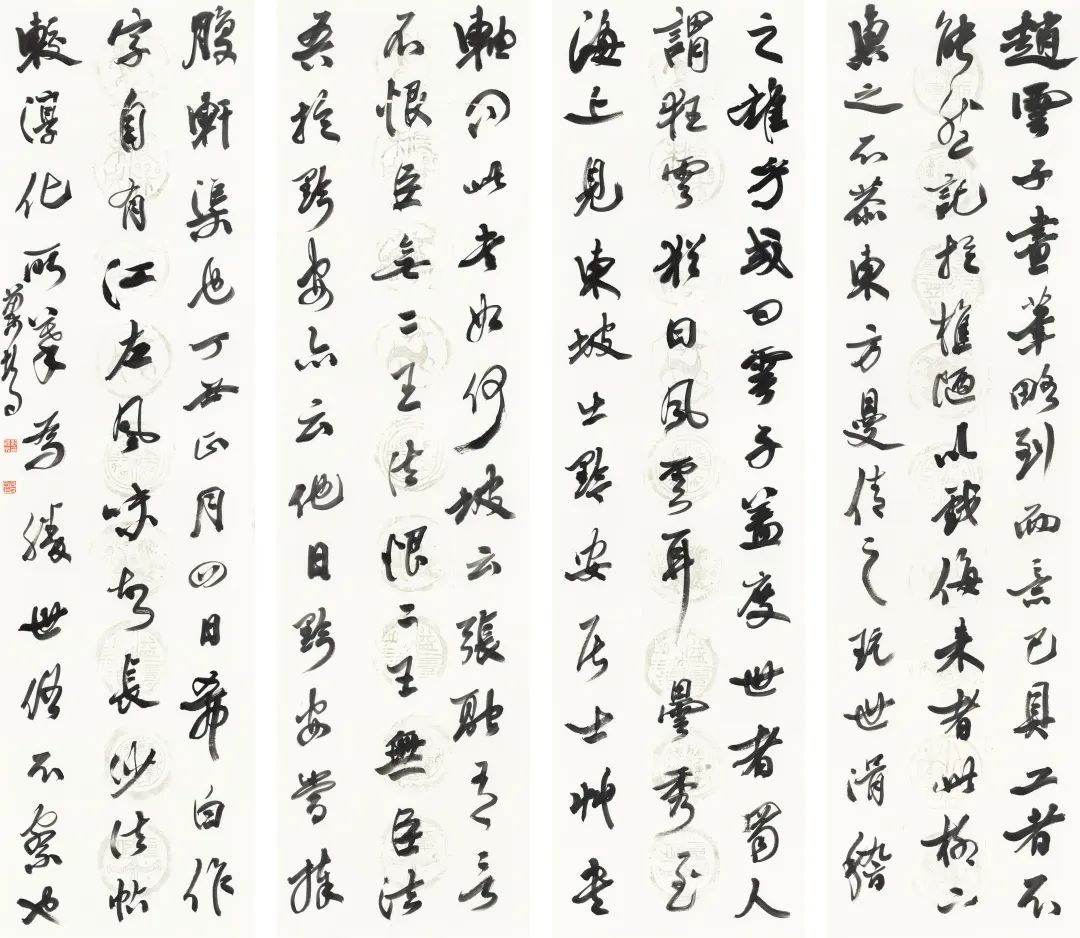 趙雲子畫筆略到而意已具工者不
能然託於椎陋以戲侮来者此柳下
惠之不恭東方曼倩之玩世滑稽
之雄乎或曰雲子蓋度世者蜀人
謂狂雲猶曰風雲耳曇秀至
海上見東坡出黔安居士草書
軸問此書如何坡云張融有言
不恨臣無二王法恨二王無臣法
吾於黔安亦云他日黔安當捧
腹軒渠也丁丑正月四日希白作
字自有江左風味故長沙法帖
較淳化所摹為勝世俗不察也